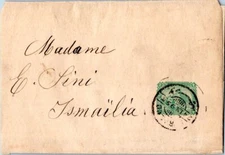 Madame
E. Sini
Ismaïlia